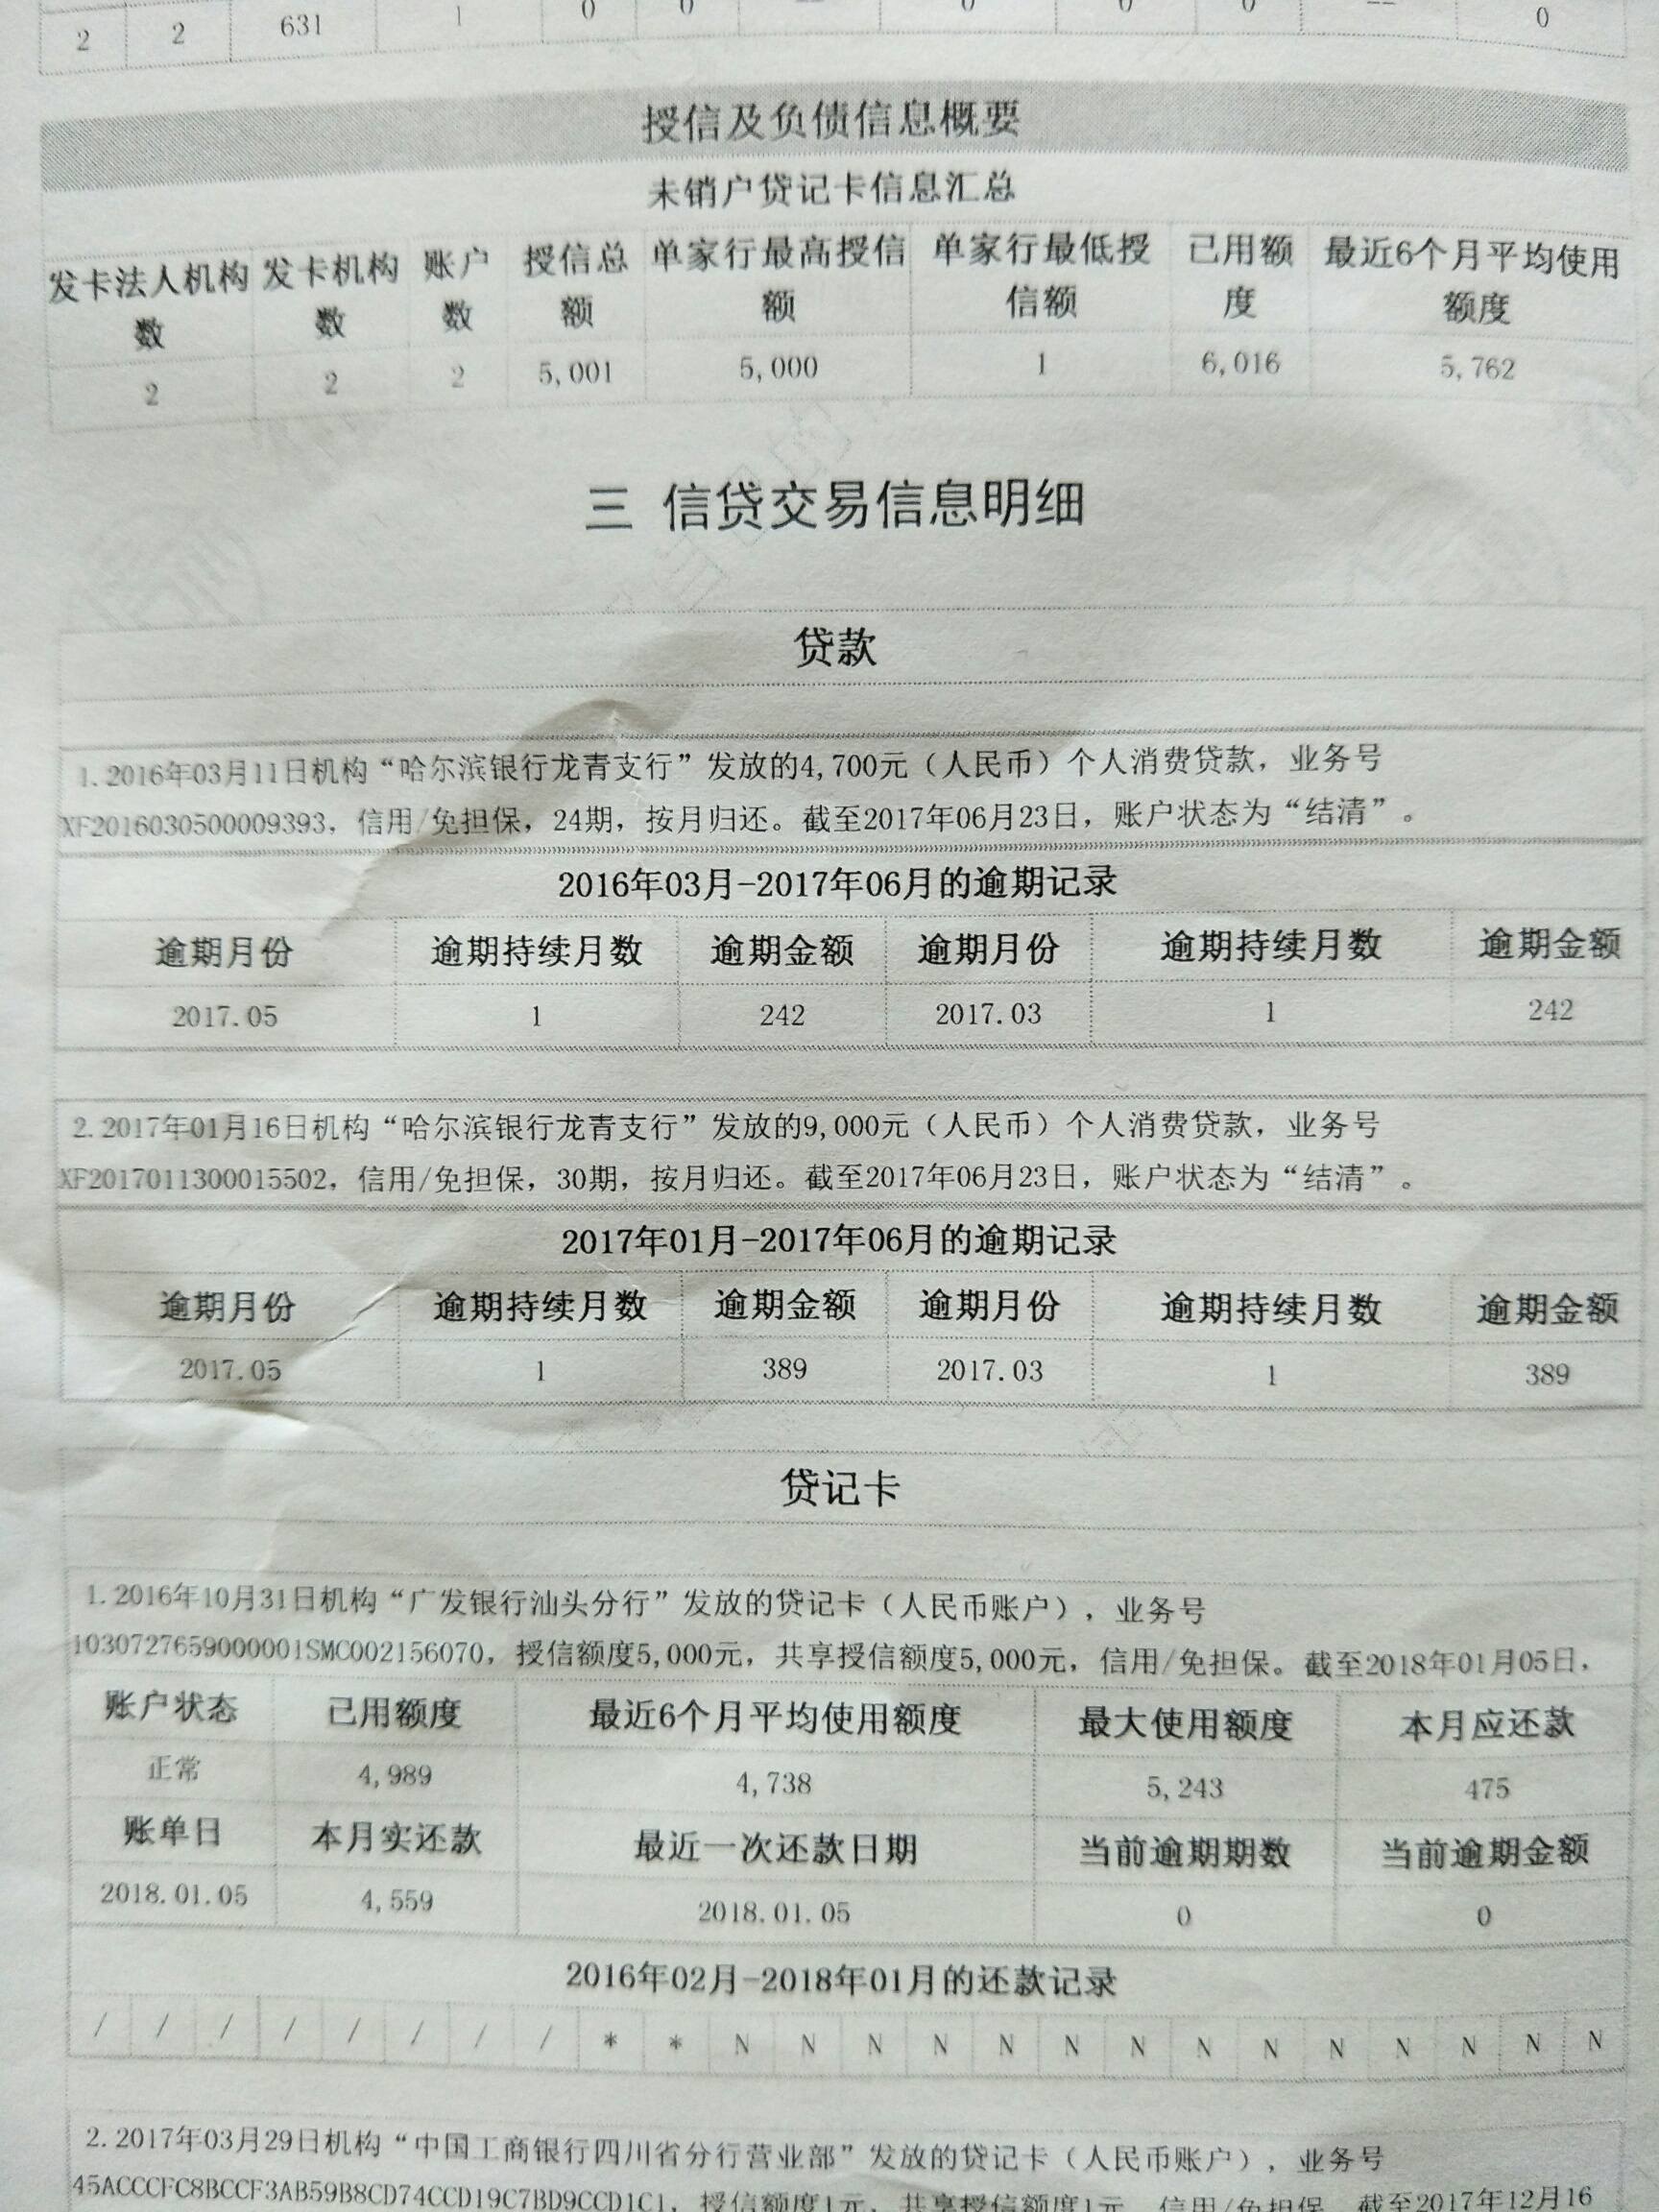 2 2 631 1 0 0 -- 0 0 0 -- 0
授信及负债信息概要
未销户贷记卡信息汇总
发卡法人机构数 发卡机构数 账户数 授信总额 单家行最高授信额 单家行最低授信额 已用额度 最近6个月平均使用额度
2 2 2 5,001 5,000 1 6,016 5,762
三 信贷交易信息明细
贷款
1.2016年03月11日机构“哈尔滨银行龙青支行”发放的4,700元（人民币）个人消费贷款，业务号
XF2016030500009393，信用/免担保，24期，按月归还。截至2017年06月23日，账户状态为“结清”。
2016年03月-2017年06月的逾期记录
逾期月份 逾期持续月数 逾期金额 逾期月份 逾期持续月数 逾期金额
2017.05 1 242 2017.03 1 242
2.2017年01月16日机构“哈尔滨银行龙青支行”发放的9,000元（人民币）个人消费贷款，业务号
XF2017011300015502，信用/免担保，30期，按月归还。截至2017年06月23日，账户状态为“结清”。
2017年01月-2017年06月的逾期记录
逾期月份 逾期持续月数 逾期金额 逾期月份 逾期持续月数 逾期金额
2017.05 1 389 2017.03 1 389
贷记卡
1.2016年10月31日机构“广发银行汕头分行”发放的贷记卡（人民币账户），业务号
1030727659000001SMC002156070，授信额度5,000元，共享授信额度5,000元，信用/免担保。截至2018年01月05日，
账户状态 已用额度 最近6个月平均使用额度 最大使用额度 本月应还款
正常 4,989 4,738 5,243 475
账单日 本月实还款 最近一次还款日期 当前逾期期数 当前逾期金额
2018.01.05 4,559 2018.01.05 0 0
2016年02月-2018年01月的还款记录
/ / / / / / / / * * N N N N N N N N N N N N N N
2.2017年03月29日机构“中国工商银行四川省分行营业部”发放的贷记卡（人民币账户），业务号
45ACCCFC8BCCF3AB59B8CD74CCD19C7BD9CCD1C1，授信额度1元，共享授信额度1元，信用/免担保。截至2017年12月16